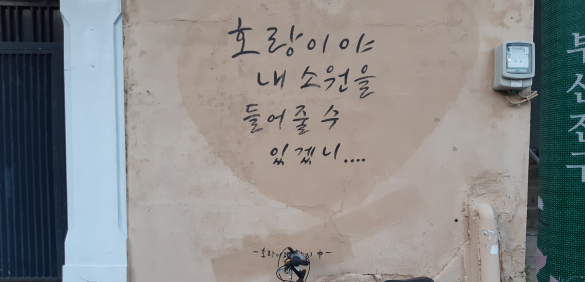 호랑이야
내 소원을
들어줄 수
있겠니....
부산진구